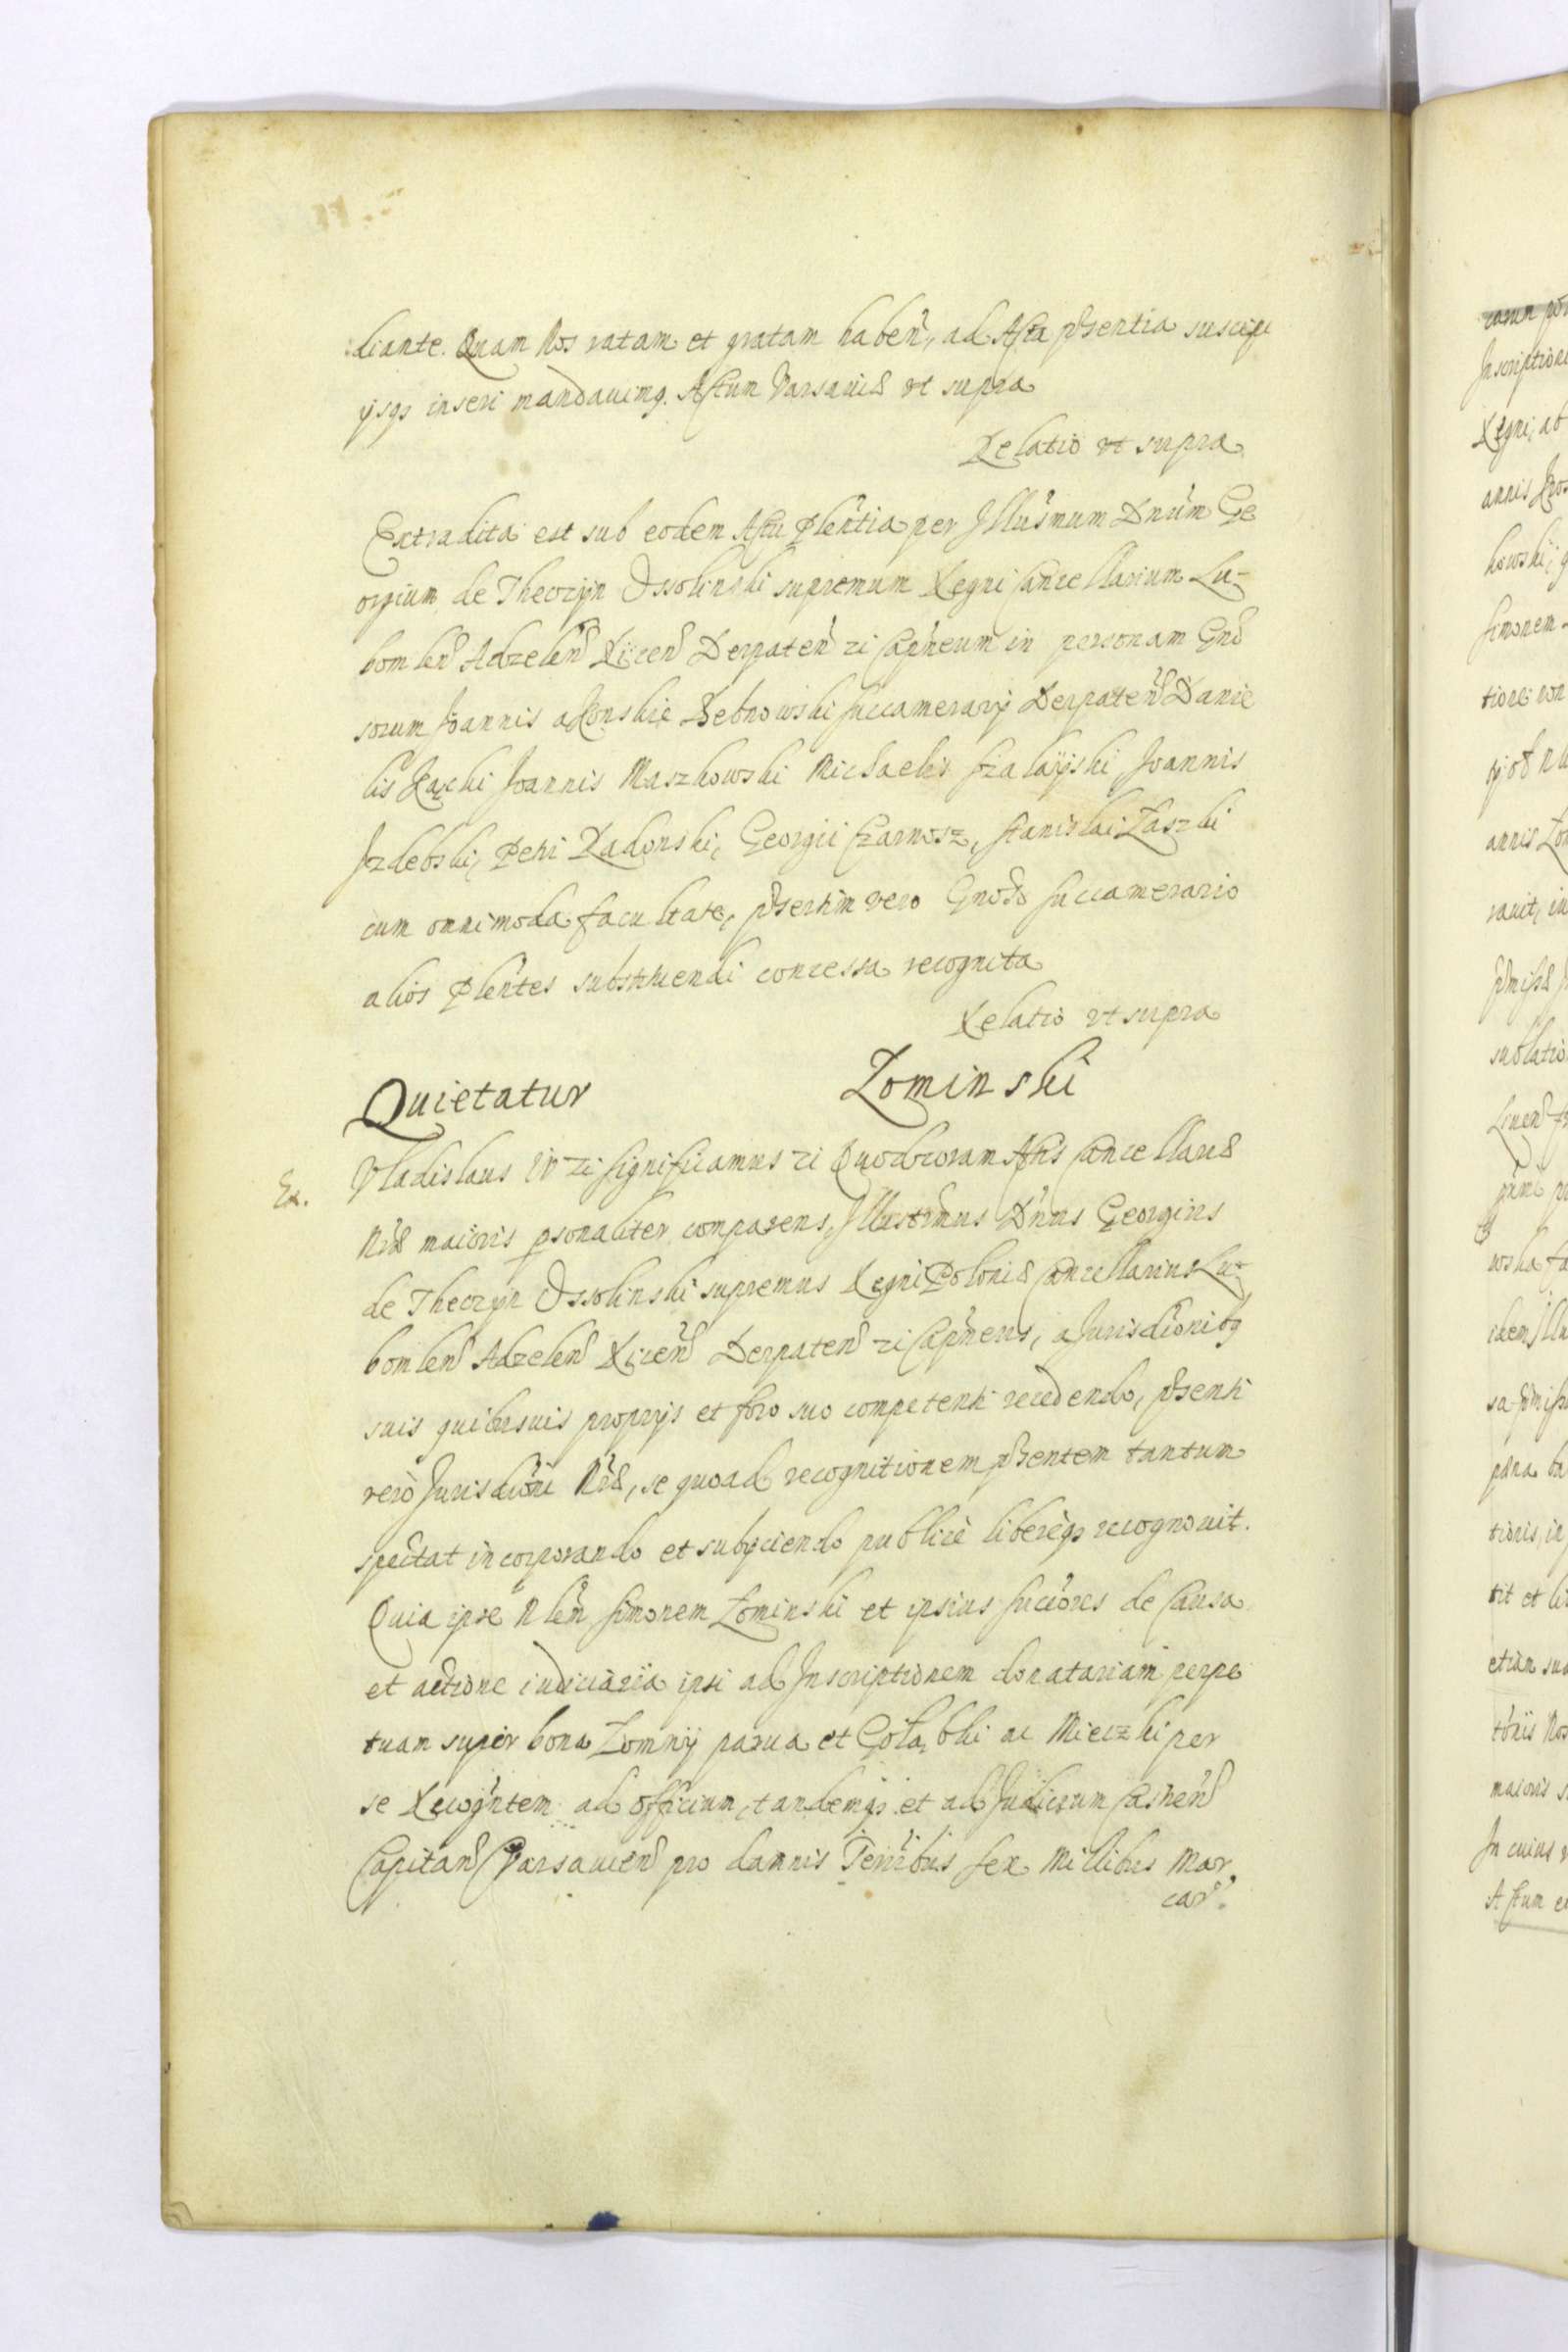 diante. Quam Nos ratam et gratam habeñ, ad Acta pñsentia suscipi
ijsqꝫ inseri mandauimꝰ. Actum Varsauiæ vt supra
Relatio vt supra
Extradita est sub eodem Actu Plentia per Illusmum Dnum Ge
orgium de Theczyn Ossolinski supremum Regni Cancellarium Lu-
bomlen Adzelen Ricen Derpaten zc Capneum in personam Gno
sorum Joannis a Konskie Debnowski Succamerarij Derpaten Danie
lis Joannis Maszkowski Michaelis Joannis
Jzdebski, Petri Radonski, Georgii Czarnosz, Stanislai Zaszki
cum omnimoda facultate, pñsertim vero Gnoso Succamerario
alios Plentes substituendi concessa recognita
Relatio vt supra
Quietatur Zominski
Ex. Vladislaus IV zc Significamus zc Quod coram Actis Cancellariæ
Nræ maioris psonaliter comparens, Illustrmus Dnus Georgius
de Theczyn Ossolinski supremus Regni Poloniæ Cancellarius Lu-
bomlen Adzelen Ricen Derpaten zc Capneus, a Jurisdionibꝰ
suis quibusuis proprijs et foro suo competenti recedendo, pñsenti
vero Jurisdioni Nræ, se quoad recognitionem pñsentem tantum
spectat incorporando et subijciendo publicè liberèqꝫ recognouit.
Quia ipse Nlem Simonem Zominski et ipsius succiores de Causa
et actione iudiciaria ipsi ad Inscriptionem donatariam perpe
tuam super bona Zomny parua et Gołąbki ac Mieczki per
se Recogntem ad officium, tandemqꝫ et ad Judicium Castren
Capitan Varsauien pro damnis Terribus sex Millibus Mar
car.